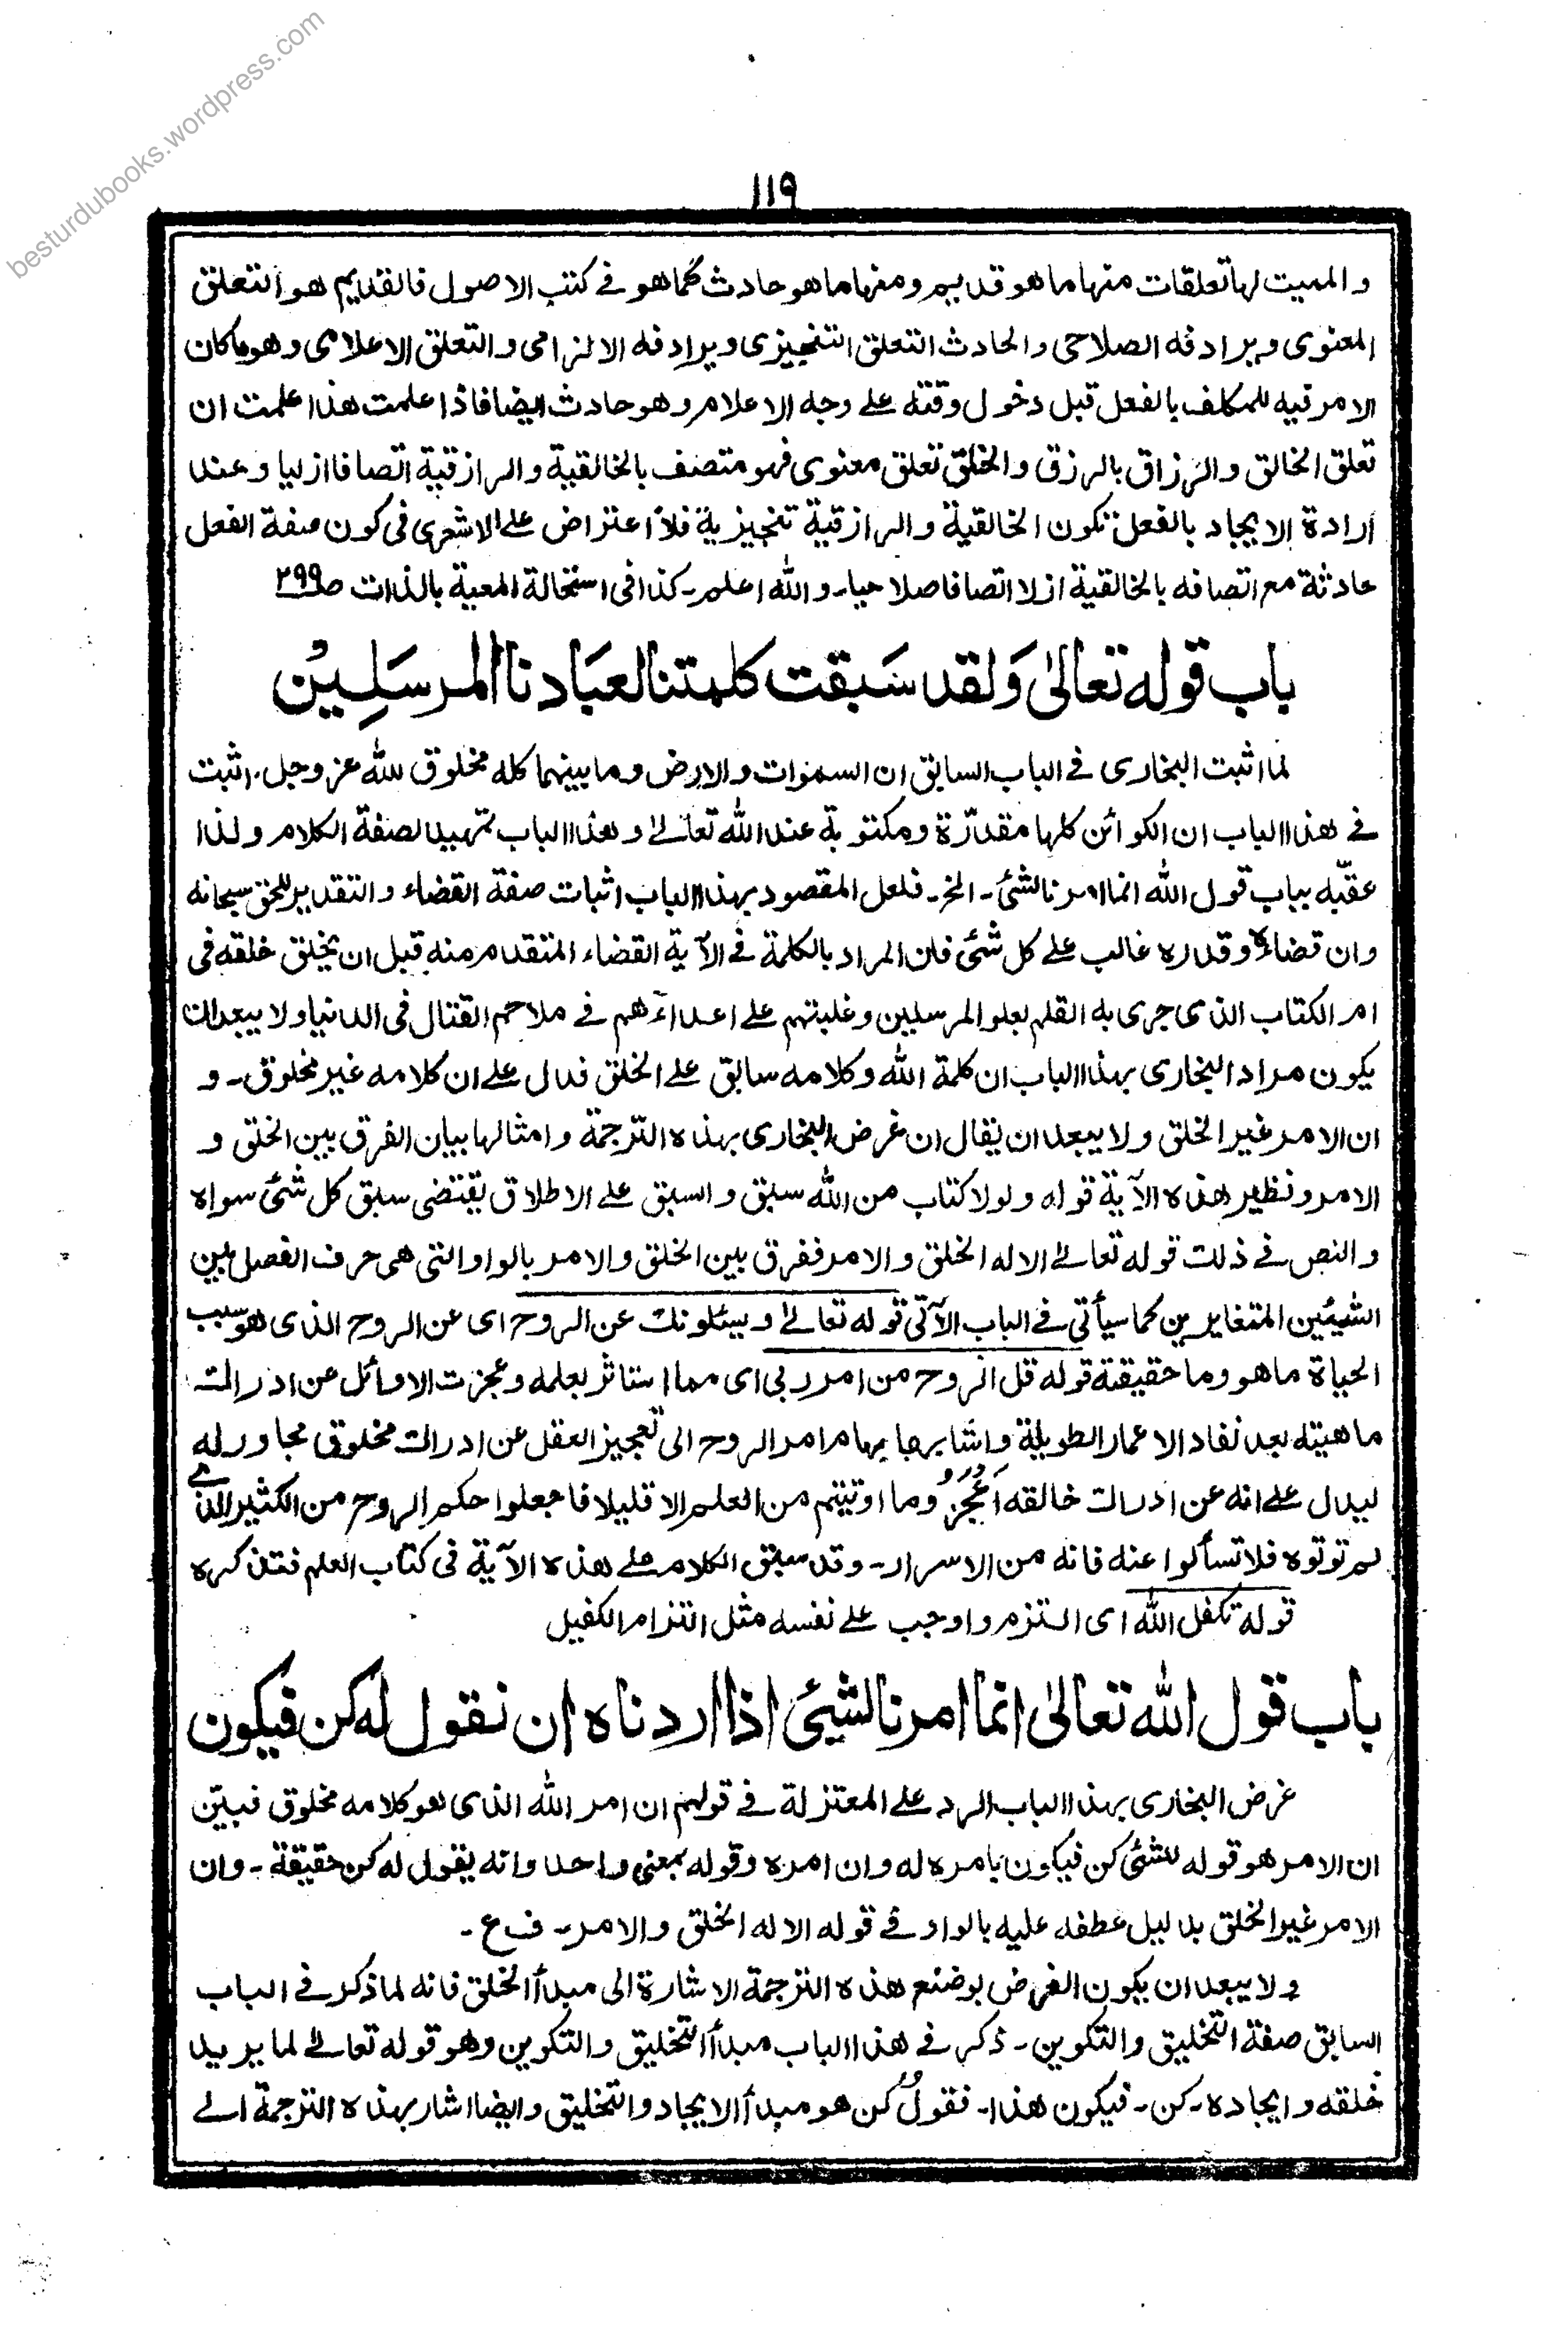 besturdubooks.wordpress.com
١١٩
والمميت لها تعلقات منها ما هو قديم ومنها ما هو حادث كما هو في كتب الاصول فالقديم هو التعلق
المعنوى ويرادفه الصلاحى والحادث التعلق التنجيزى ويرادفه الالزامى والتعلق الاعلامى وهو ما كان
الامر فيه للمكلف بالفعل قبل دخول وقته على وجه الاعلام وهو حادث ايضا فاذا علمت هذا علمت ان
تعلق الخالق والرزاق بالرزق والخلق تعلق معنوى فهو متصف بالخالقية والرازقية اتصافا ازليا وعند
ارادة الايجاد بالفعل تكون الخالقية والرازقية تنجيزية فلا اعتراض على الاشعرى فى كون صفة الفعل
حادثة مع اتصافه بالخالقية ازلا اتصافا صلاحيا۔ والله اعلم۔ كذا فى استحالة المعية بالذات ص ٢٩٩
باب قوله تعالىٰ وَلقد سَبقت كلمتنا لعبَادنا المرسَلِيْن
لما اثبت البخارى فى الباب السابق ان السموات والارض وما بينهما كله مخلوق لله عز وجل، اثبت
فى هذا الباب ان الكوائن كلها مقدّرة ومكتوبة عند الله تعالىٰ وهذا الباب تمهيد لصفة الكلام ولذا
عقّبه بباب قول الله انما امرنا لشئ۔ الخ۔ فلعل المقصود بهذا الباب اثبات صفة القضاء والتقدير للحق سبحانه
وان قضاءه وقدره غالب على كل شئ فان المراد بالكلمة فى الآية القضاء المتقدم منه قبل ان يخلق خلقه فى
ام الكتاب الذى جرى به القلم بعلو المرسلين وغلبتهم على اعدائهم فى ملاحم القتال فى الدنيا ولا يبعد ان
يكون مراد البخارى بهذا الباب ان كلمة الله وكلامه سابق على الخلق فدل على ان كلامه غير مخلوق۔ و
ان الامر غير الخلق ولا يبعد ان يقال ان غرض البخارى بهذه الترجمة وامثالها بيان الفرق بين الخلق و
الامر ونظير هذه الآية قوله ولولا كتاب من الله سبق والسبق على الاطلاق يقتضى سبق كل شئ سواه
والنص فى ذلك قوله تعالىٰ الا له الخلق والامر ففرق بين الخلق والامر بالواو التى هى حرف الفصل بين
الشيئين المتغايرين كما سيأتى فى الباب الآتى قوله تعالىٰ ويسئلونك عن الروح اى عن الروح الذى هو سبب
الحياة ما هو وما حقيقته قوله قل الروح من امر ربى اى مما استاثر بعلمه وعجزت الاوائل عن ادراك
ماهيته بعد نفاد الاعمار الطويلة واشار بها بهام امر الروح الى تعجيز العقل عن ادراك مخلوق مجاور له
ليدل على انه عن ادراك خالقه اَعْجَزُ وما اوتيتم من العلم الا قليلا فاجعلوا حكم الروح من الكثير الذى
لم توتوه فلا تسألوا عنه فانه من الاسرار۔ وقد سبق الكلام على هذه الآية فى كتاب العلم فتذكره
قوله تكفل الله اى التزم واوجب على نفسه مثل التزام الكفيل
باب قول الله تعالىٰ انما امرنا لشيئ اذا اردناه ان نقول له كن فيكون
غرض البخارى بهذا الباب الرد على المعتزلة فى قولهم ان امر الله الذى هو كلامه مخلوق فبيّن
ان الامر هو قوله للشئ كن فيكون بامره له وان امره وقوله بمعنى واحد وانه يقول له كن حقيقة۔ وان
الامر غير الخلق بدليل عطفه عليه بالواو فى قوله الا له الخلق والامر۔ ف ع۔
ولا يبعد ان يكون الغرض بوضع هذه الترجمة الاشارة الى مبدأ الخلق فانه لما ذكر فى الباب
السابق صفة التخليق والتكوين۔ ذكر فى هذا الباب مبدأ التخليق والتكوين وهو قوله تعالىٰ لما يريد
خلقه وايجاده۔ كن۔ فيكون هذا۔ فقولُ كن هو مبدأ الايجاد والتخليق وايضا اشار بهذه الترجمة الى